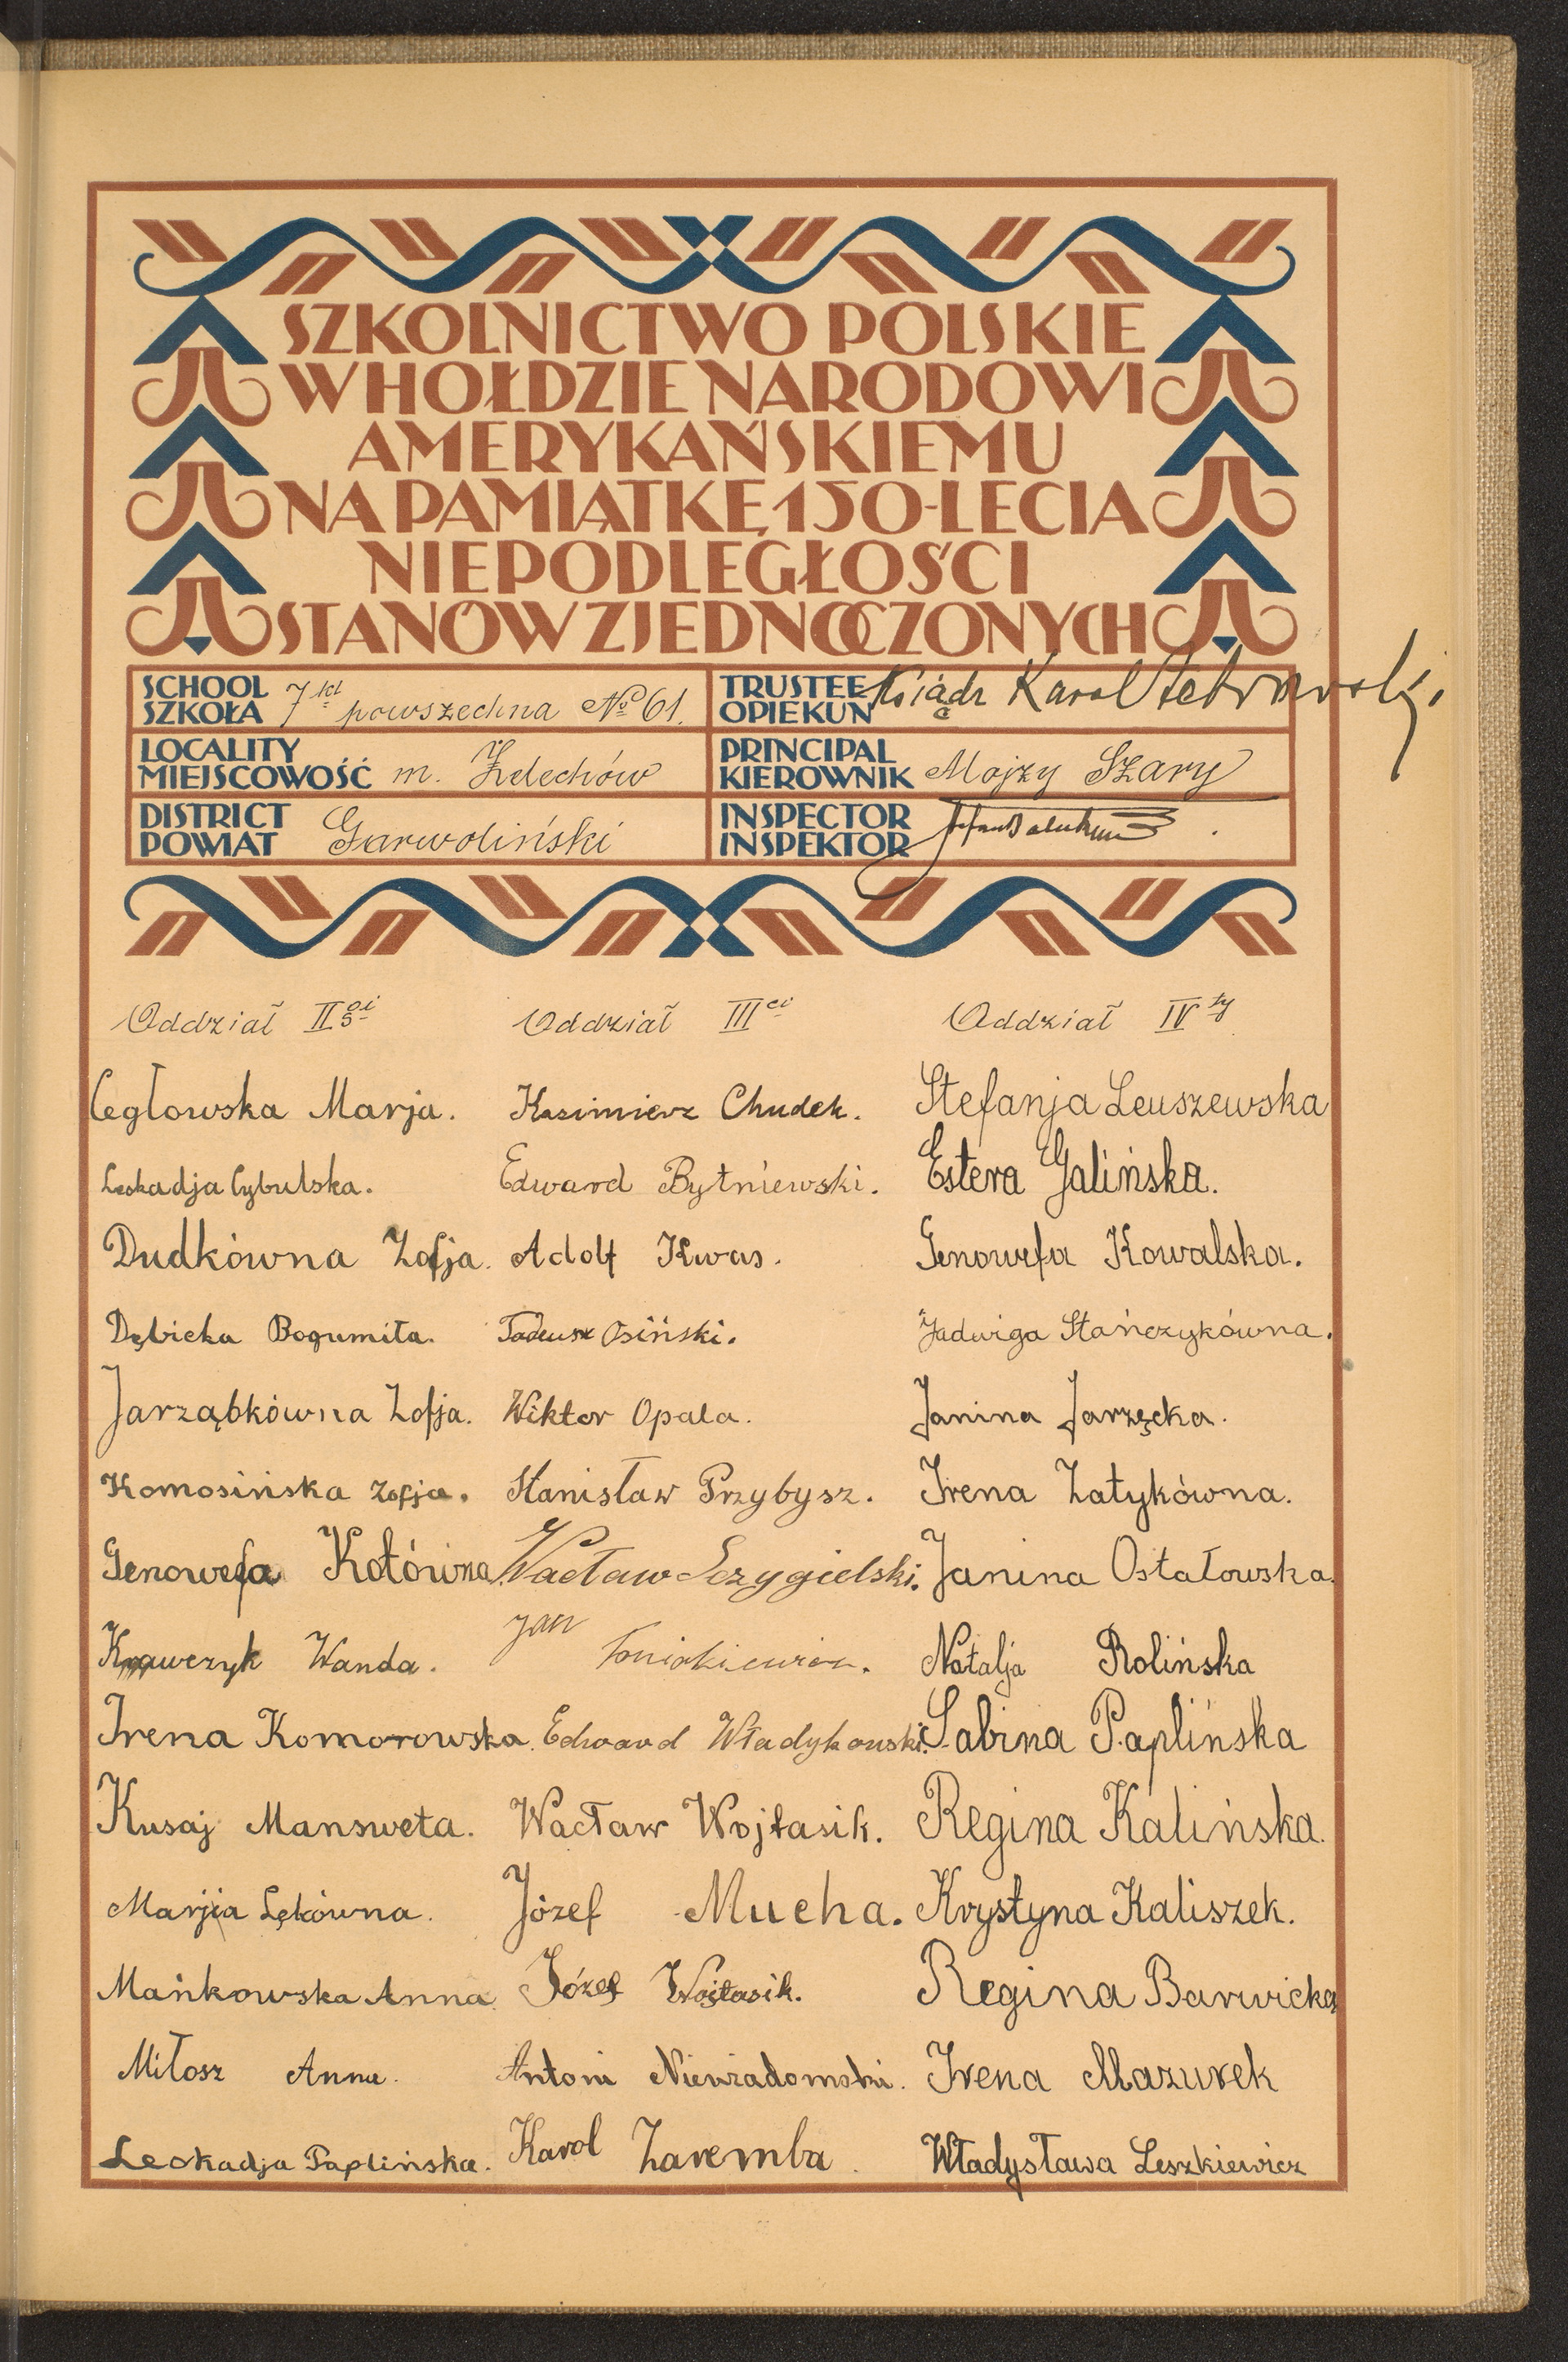 SZKOLNICTWO POLSKIE
W HOŁDZIE NARODOWI
AMERYKAŃSKIEMU
NA PAMIĄTKĘ 150-LECIA
NIEPODLEGŁOŚCI
STANÓW ZJEDNOCZONYCH
SCHOOL
SZKOŁA
7 kl powszechna № 61.
TRUSTEE
OPIEKUN
Ksiądz Karol
LOCALITY
MIEJSCOWOŚĆ
m. Żelechów
PRINCIPAL
KIEROWNIK
Mojzy Szary
DISTRICT
POWIAT
Garwoliński
INSPECTOR
INSPEKTOR
Oddział II gi
Cegłowska Marja.
Leokadja Cybulska.
Dudkówna Zofja.
Dębicka Bogumiła.
Jarząbkówna Zofja.
Komosińska Zofja.
Genowefa Kotówna
Krawczyk Wanda.
Irena Komorowska.
Kusaj Mansweta.
Marjia Lękówna.
Mańkowska Anna.
Miłosz Anna.
Leokadja Paplińska.
Oddział III ci
Kazimierz Chudek.
Edward Bytniewski.
Adolf Kwas.
Tadeusz Osiński.
Wiktor Opala.
Stanisław Przybysz.
Wacław Sczygielski.
Jan
Edward Władykowski.
Wacław Wojtasik.
Józef Mucha.
Józef Wojtasik.
Antoni Niewiadomski.
Karol Zaremba.
Oddział IV ty
Stefanja Leuszewska
Estera Galińska.
Genowefa Kowalska.
Jadwiga Stańczykówna.
Janina Jarzęcka.
Irena Zatykówna.
Janina Ostałowska.
Natalja Rolińska
Sabina Paplińska
Regina Kalińska.
Krystyna Kaliszek.
Regina Barwicka
Irena Mazurek
Władysława Leszkiewicz